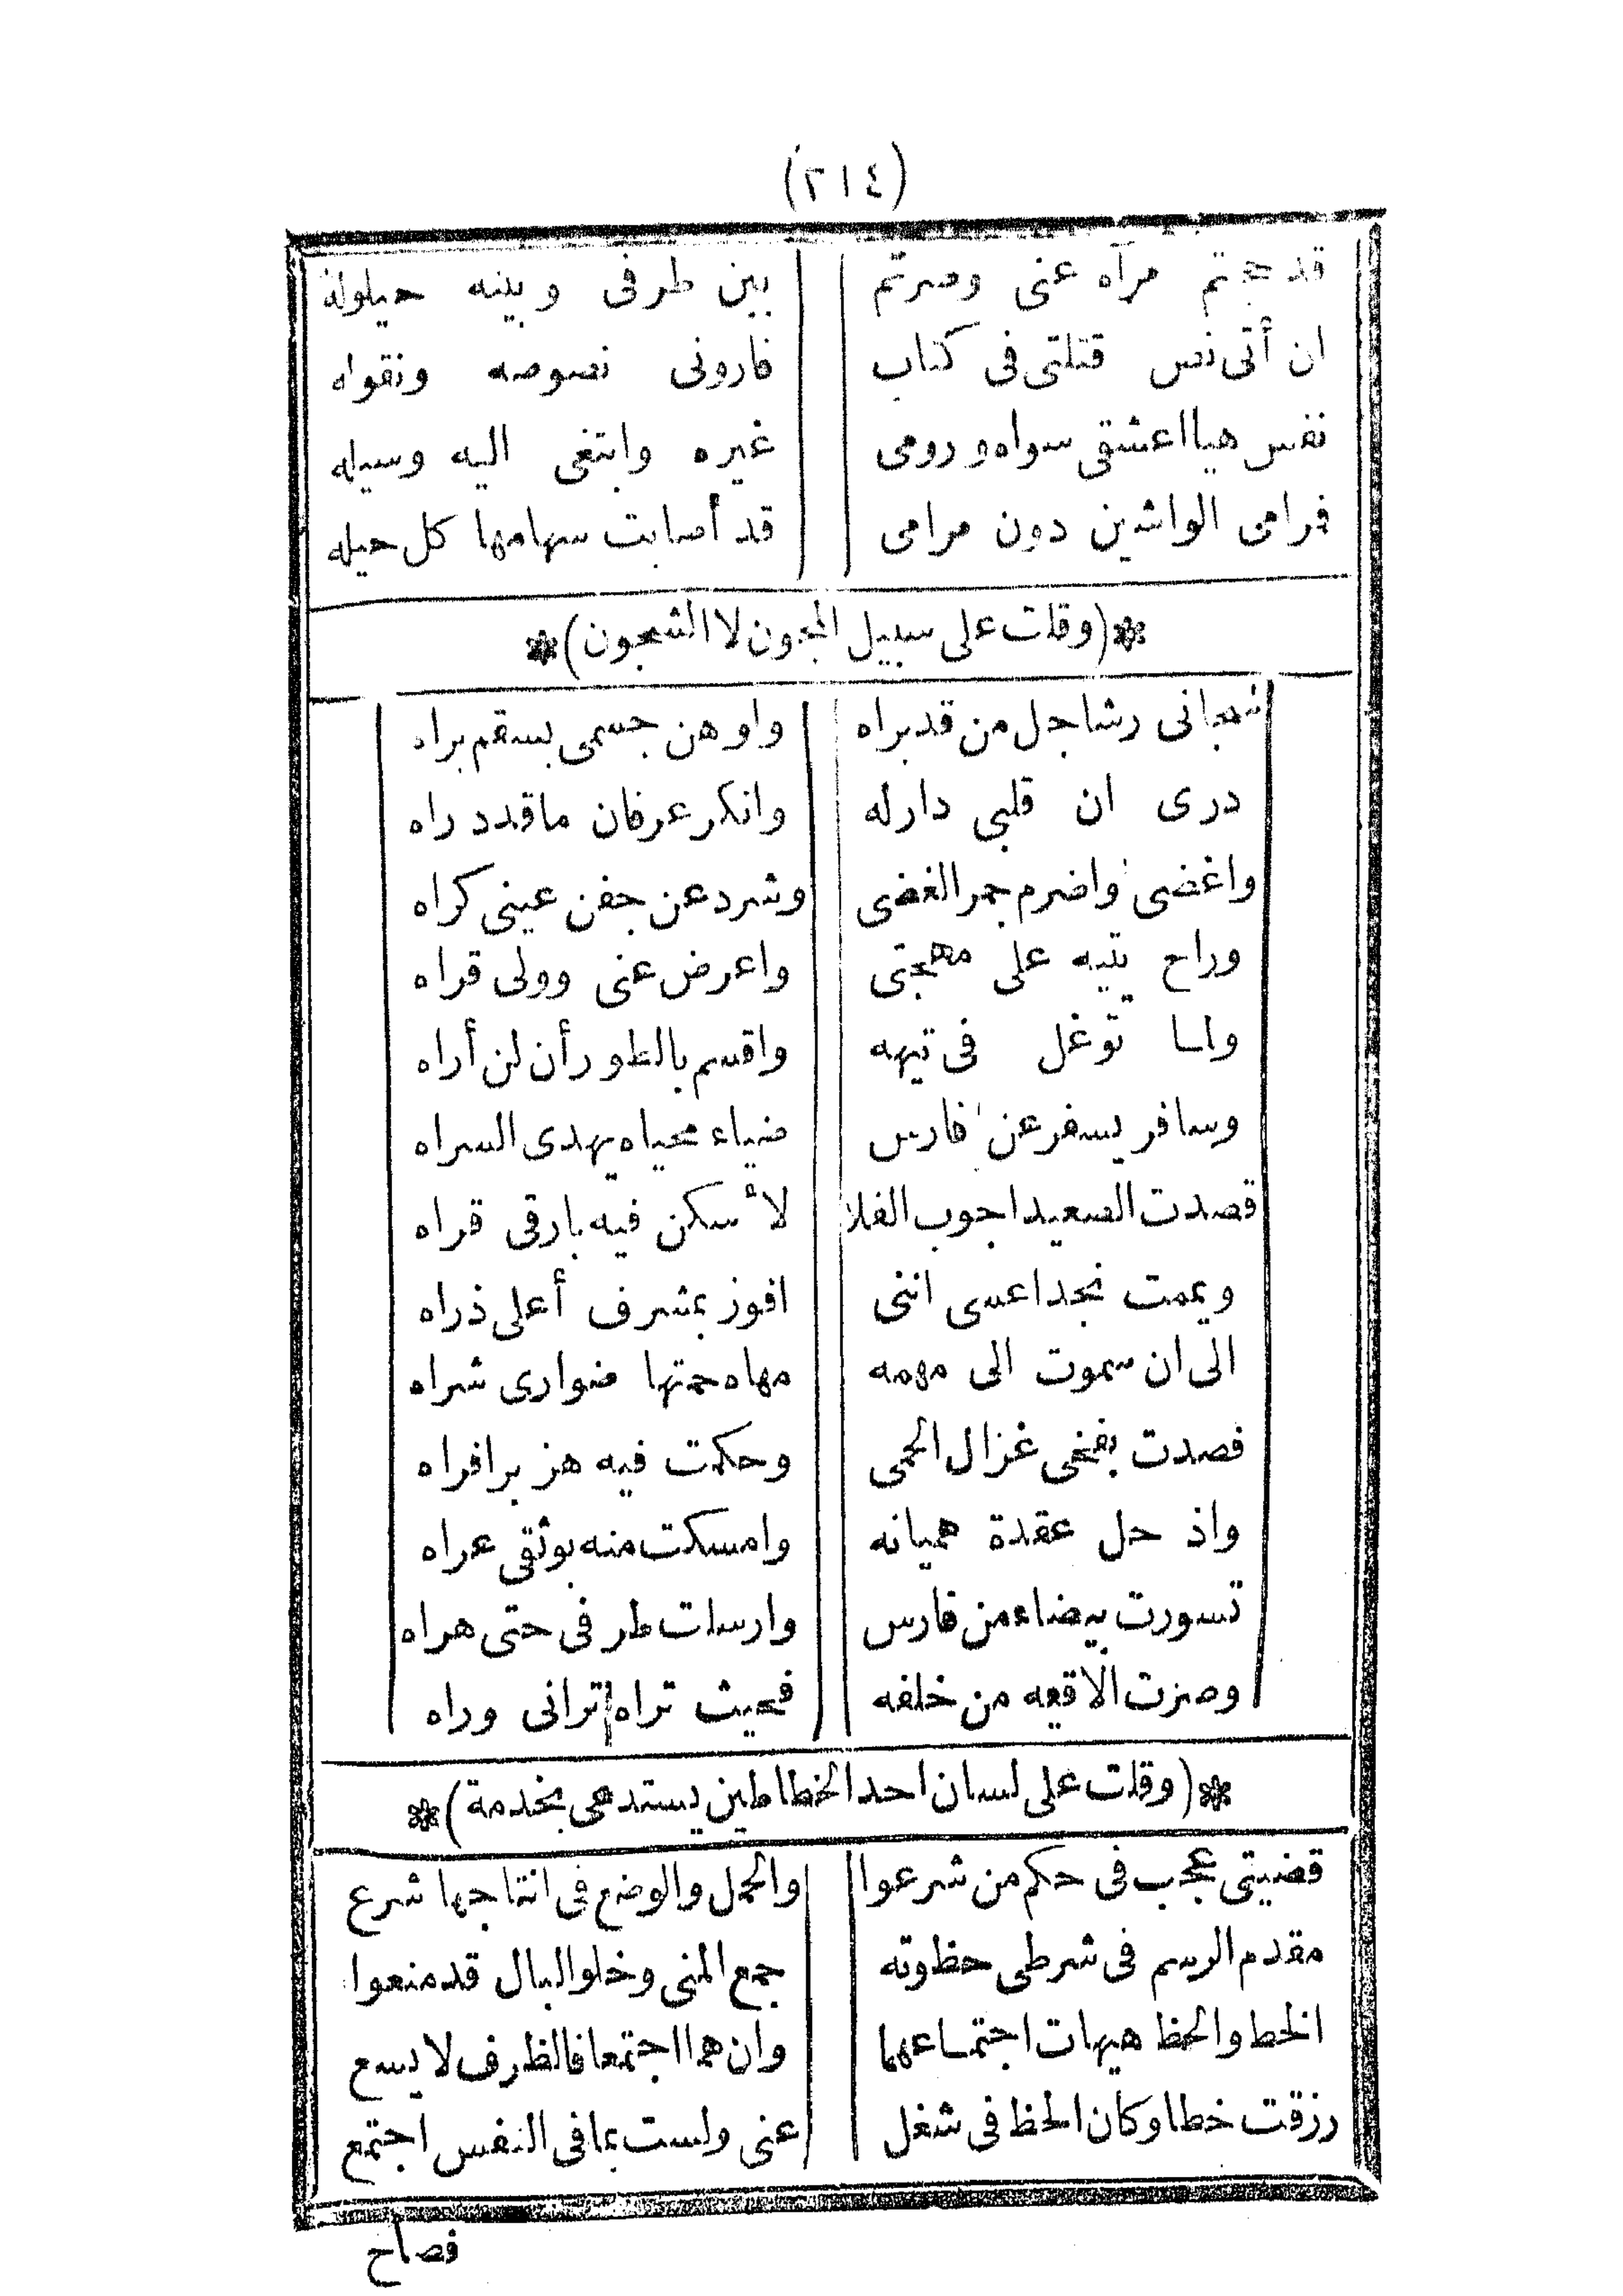 (٢١٤)
قد حجبتم مرآه عنى وصرتم بين طرفى وبينه حيلوله
ان أتى نص قتلتى فى كتاب فارونى نصوصه ونقوله
نفس هيا اعشقى سواه ورومى غيره وابتغى اليه وسيله
فرامى الواشين دون مرامى قد أصابت سهامها كل حيله
*(وقلت على سبيل المجون لا الشجون)*
شجانى رشا جل من قد براه واوهن جسمى بسقم براه
درى ان قلبى دار له وانكر عرفان ما قد دراه
واغضى واضرم جمر الغضى وشرد عن جفن عينى كراه
وراح يتيه على مهجتى واعرض عنى وولى قراه
ولما توغل فى تيهه واقسم بالطور أن لن أراه
وسافر يسفر عن فارس ضياء محياه يهدى السراه
قصدت الصعيد اجوب الفلا لأسكن فيه بارقى قراه
ويممت نجدا عسى اننى افوز بمشرف أعلى ذراه
الى ان سموت الى مهمه مهاه حمتها ضوارى شراه
فصدت بفخى غزال الحمى وحكمت فيه هزبرا فراه
واذ حل عقدة هميانه وامسكت منه بوثقى عراه
تسورت بيضاء من فارس وارسلت طرفى حتى هراه
وصرت الاقعه من خلفه فحيث تراه ترانى وراه
*(وقلت على لسان احد الخطاطين يستدعى بخدمة)*
قضيتى عجب فى حكم من شرعوا والحمل والوضع فى انتاجها شرع
مقدم الرسم فى شرطى حظوته جمع المنى وخلو البال قد منعوا
الخط والحظ هيهات اجتماعهما وان هما اجتمعا فالظرف لا يسع
رزقت خطا وكان الحظ فى شغل عنى ولست بما فى النفس اجتمع
فصاح